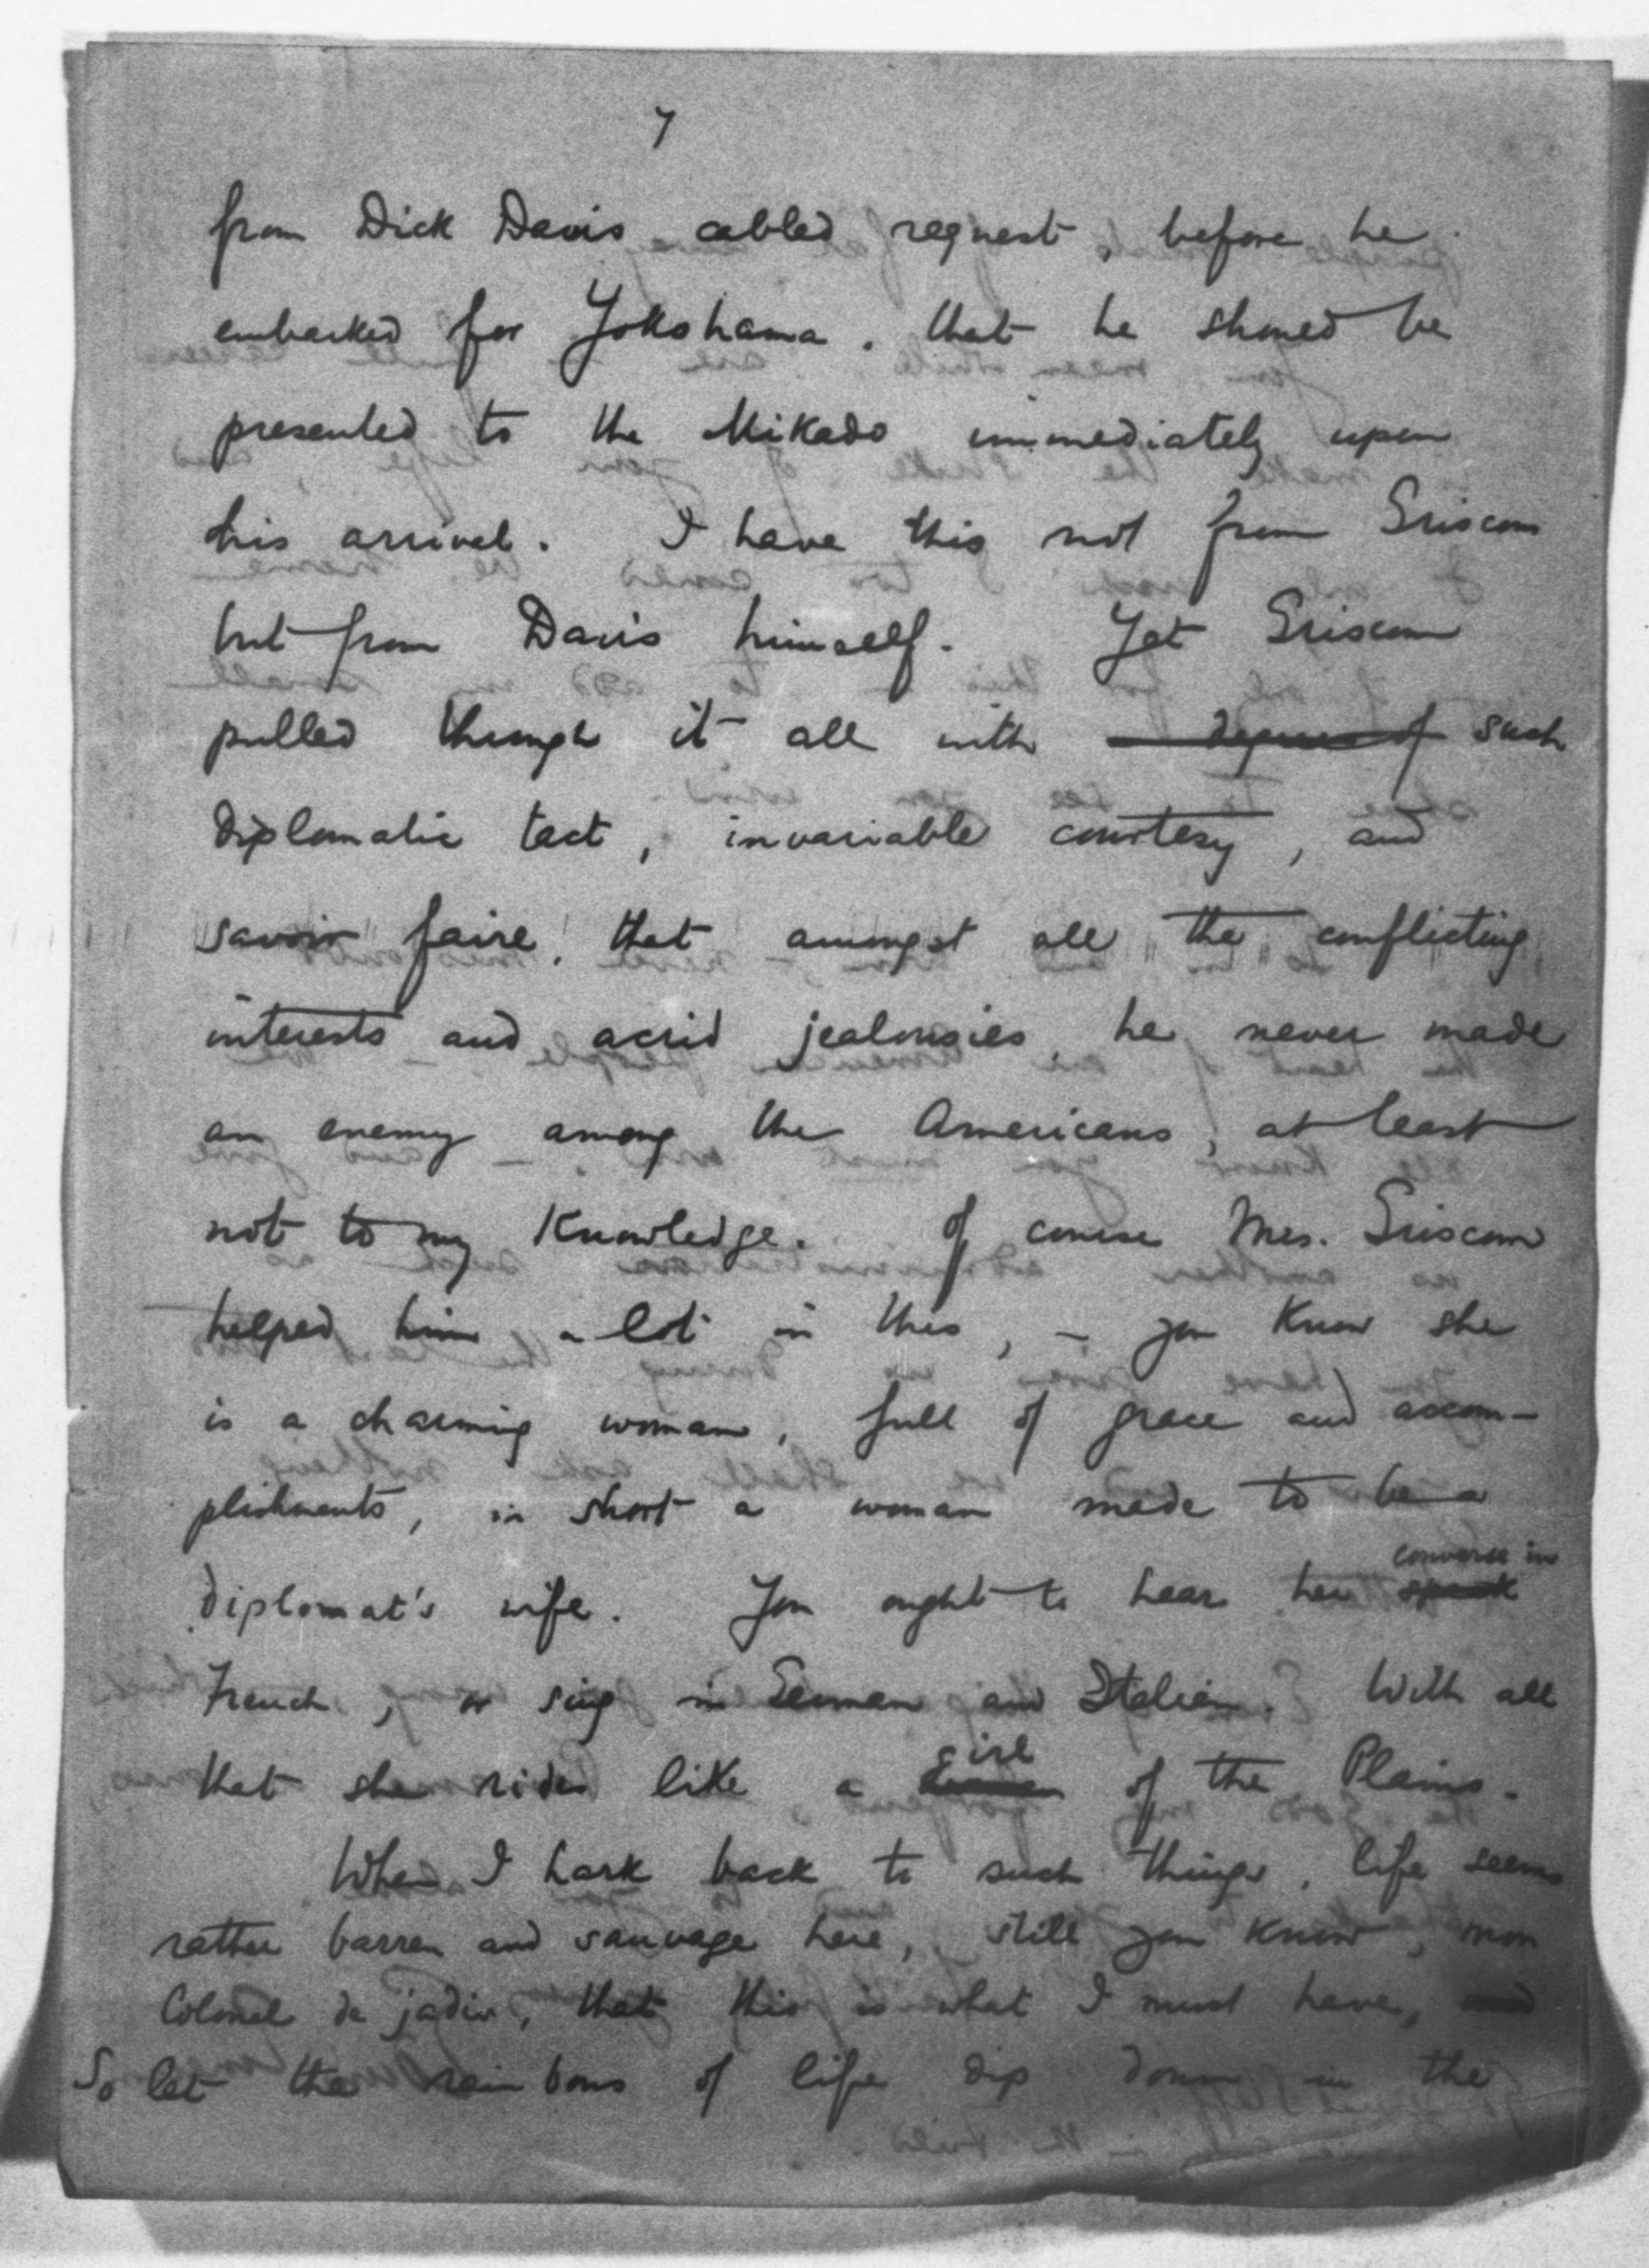 7
from Dick Davis cabled request, before he
embarked for Yokohama, that he should be
presented to the Mikado immediately upon
his arrival. I have this not from Griscom
but from Davis himself. Yet Griscom
pulled through it all with degree of such
diplomatic tact, invariable courtesy, and
savoir faire, that amongst all the conflicting
interests and acrid jealousies he never made
an enemy among the Americans, at least
not to my Knowledge. Of course Mrs. Griscom
helped him a lot in this, - you Know she
is a charming woman, full of grace and accom-
plishments, in short a woman made to be a
diplomat's wife. You ought to hear her speak converse in
French, or sing in German and Italian. With all
that she rides like a girl of the Plains.
When I hark back to such things, life seems
rather barren and sauvage here, still you Know, mon
Colonel de jadis, that this is what I must have, and
So let the rainbows of life dip down in the